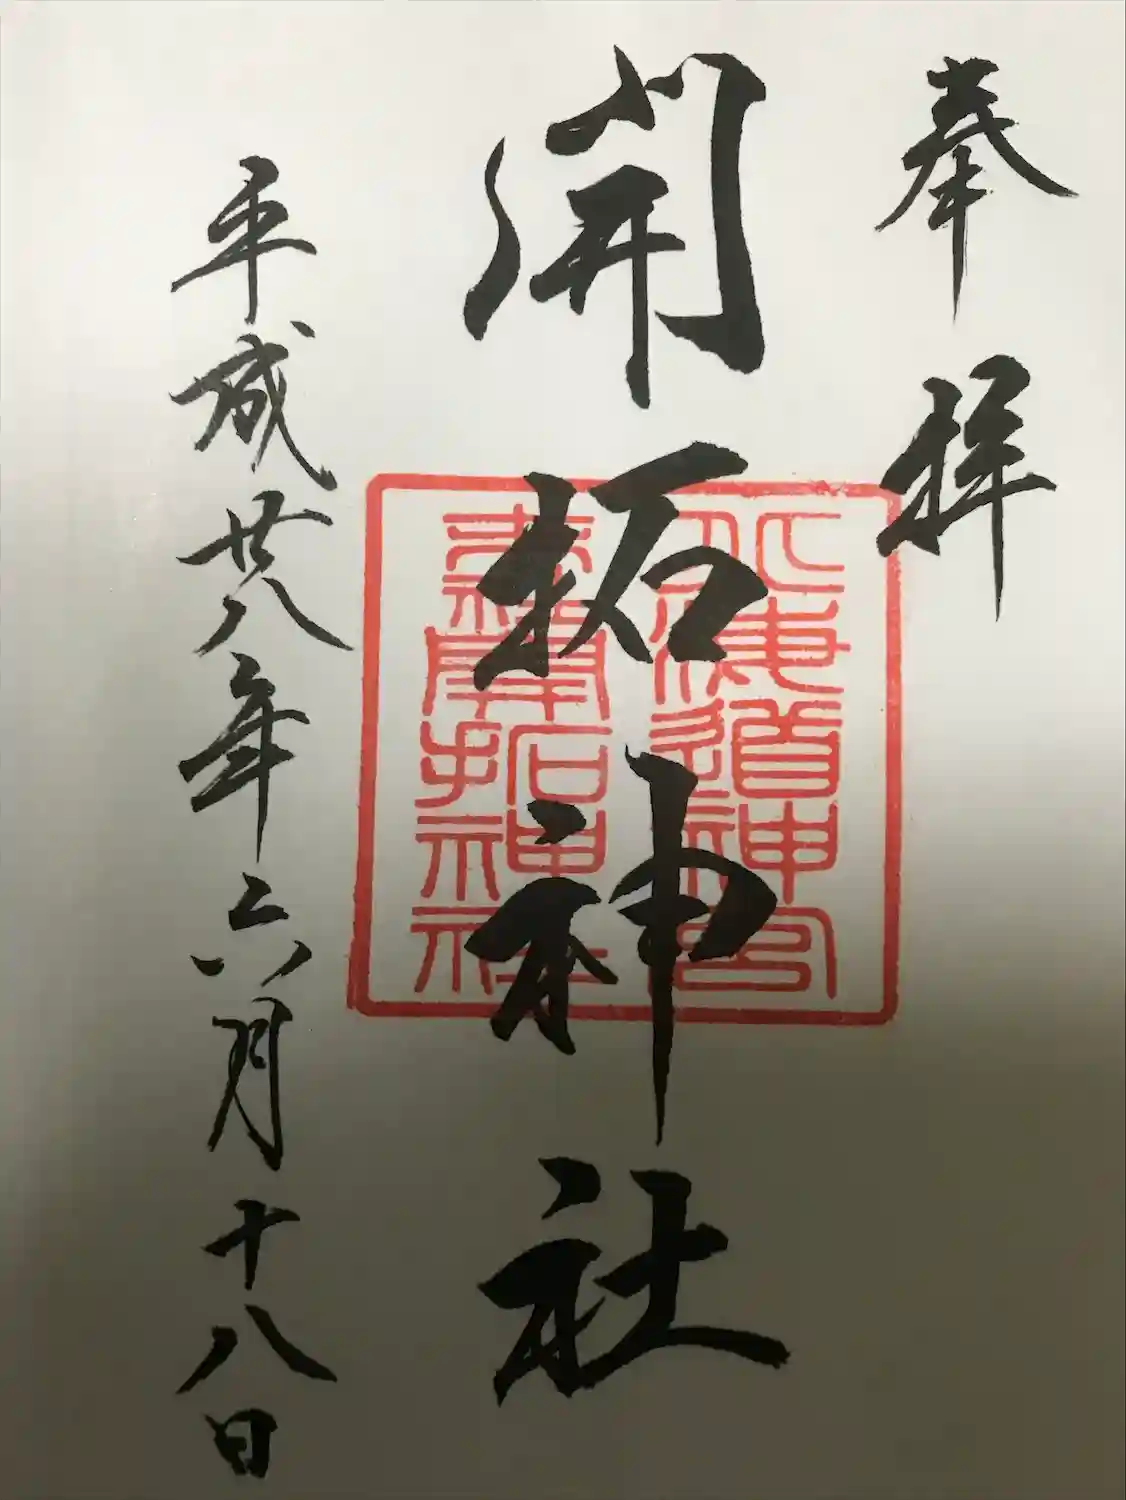 奉拝
開拓神社
北海道神宮
末開拓神社
平成廿八年六月十八日